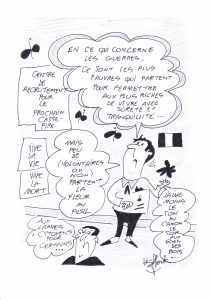 EN CE QUI CONCERNE
LES GUERRES.
CE SONT LES PLUS
PAUVRES QUI PARTENT
POUR PERMETTRE
AUX PLUS RICHES
DE VIVRE AVEC
SURETÉ ET
TRANQUILITÉ...
CENTRE
DE
RECRUTEMENT
POUR
LE
PROCHAIN
CASSE-
PIPE.
VIVE
LA
VIE
VIVE
LA
MORT.
MAIS
PEU
DE
VOLONTAIRES
OU
NON
PARTENT
LA
FLEUR
AU
FUSIL
J'AIME
MOINS
LE
SON
DU
CANON
LE
SOIR
AUX
FONDS
DES
BOIS
AUX LARMES
CITOYENS POUR
CERTAINS...